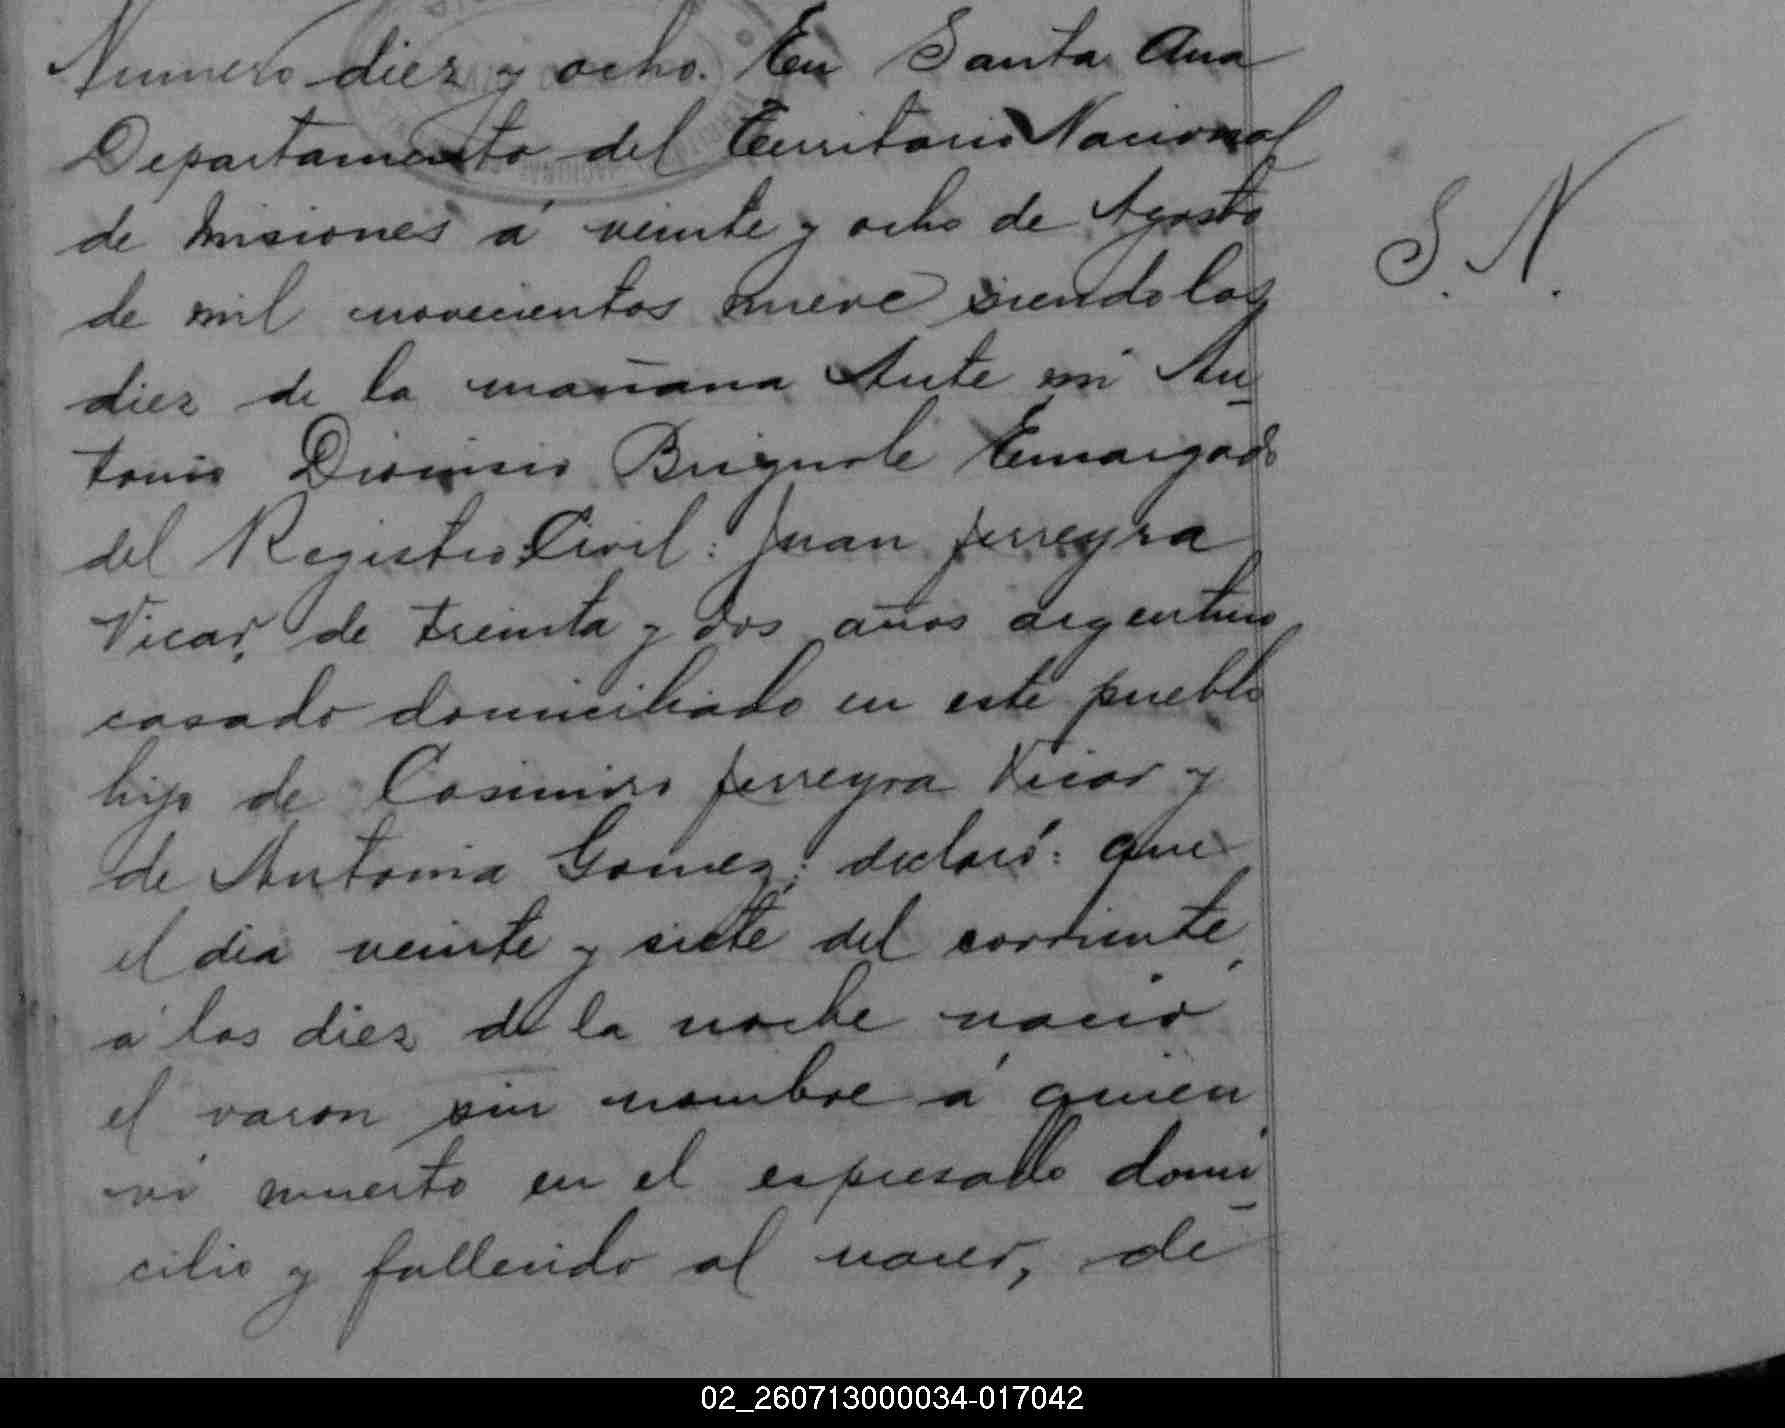 Numero diez y ocho. En Santa Ana
Departamento del Territorio Nacional
de Misiones á veinte y ocho de Agosto
de mil novecientos nueve siendo las
diez de la mañana Ante mi An-
tonio Dionisio Brignole Encargado
del Registro Civil: Juan Ferreyra
Vicar, de treinta y dos años argentino
casado domiciliado en este pueblo
hijo de Casimiro Ferreyra Vicar y
de Antonia Gomez; declaró: que
el dia veinte y siete del corriente,
á las diez de la noche nació
el varon sin nombre á quien
ví muerto en el espresado domi-
cilio y fallecido al nacer, de
S. N.
02_260713000034-017042